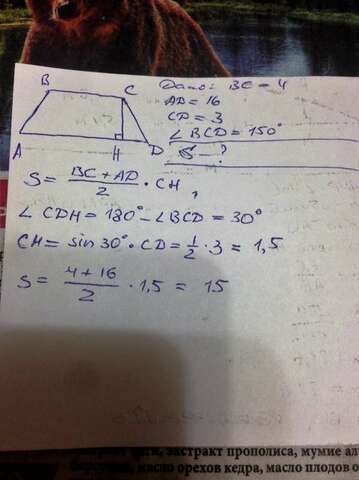 B
C
A
H
D
Дано: BC = 4
AD = 16
CD = 3
∠ BCD = 150°
S – ?
S = (BC + AD)/2 · CH,
∠ CDH = 180° – ∠ BCD = 30°
CH = sin 30° · CD = 1/2 · 3 = 1,5
S = (4 + 16)/2 · 1,5 = 15
экстракт прополиса, мумие
масло орехов кедра, масло плодов